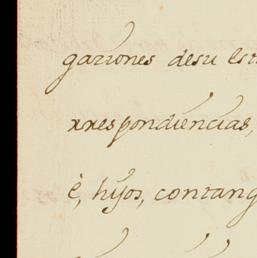 gaziones desu est
xrespondiencias,
è, hijos, contang